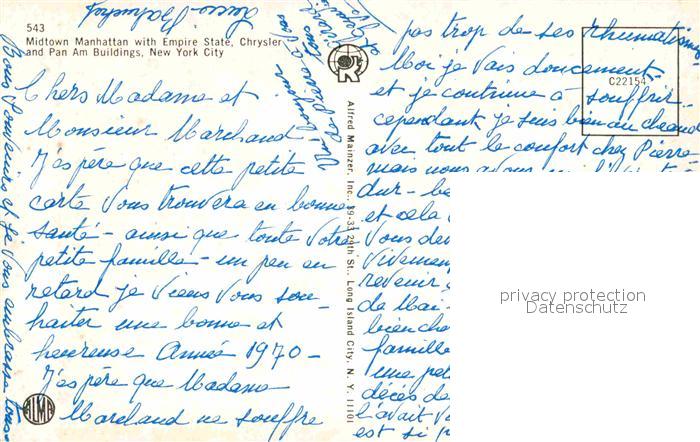 543
Midtown Manhattan with Empire State, Chrysler
and Pan Am Buildings, New York City
Chers Madame et
Monsieur Marchand
J'espère que cette petite
carte vous trouvera en bonne
santé - ainsi que toute votre
petite famille - un peu en
retard je viens vous sou-
haiter une bonne et
heureuse Année 1970 -
J'espère que Madame
Marchand ne souffre
ALMA
Bons Souvenirs et je vous embrasse tous
Alfred Mainzer, Inc. 39-33 29th St., Long Island City, N. Y. 11101
pas trop de ses rhumatismes
Moi je vais doucement
et je continue à souffrir
cependant je suis bien au chaud
avec tout le confort chez Pierre
mais nous avons
dur - be
et cela
Vous de
Vivemen
revenir
de Mai
bien che
famille
une pet
décès de
l'avait v
est si p
C22154
privacy protection
Datenschutz